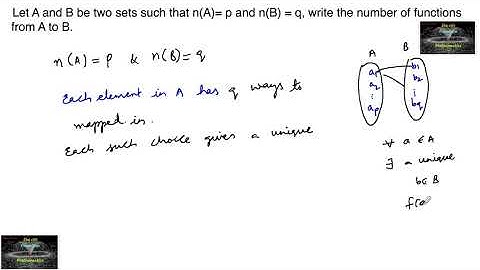 Let A and B be two sets such that n(A)= p and n(B) = q, write the number of functions
from A to B.
n(A) = p & n(B) = q
Each element in A has q ways to
mapped in.
Each such choice gives a unique
A B
a₁ b₁
a₂ b₂
⋮ ⋮
aₚ b_q
∀ a ∈ A
∃ a unique
b ∈ B
f(a